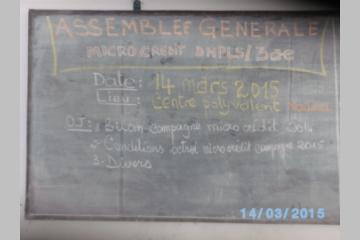 ASSEMBLEE GENERALE
MICRO CREDIT DNPLS/
Date: 14 mars 2015
Lieu: Centre polyvalent
OJ: 1 Bilan campagne micro crédit 2014
2- Conditions octroi micro crédit campagne 2015
3- Divers
14/03/2015